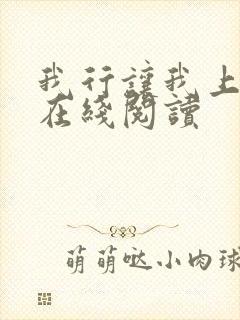 我行讓我上
在綫閱讀
萌萌哒小肉球